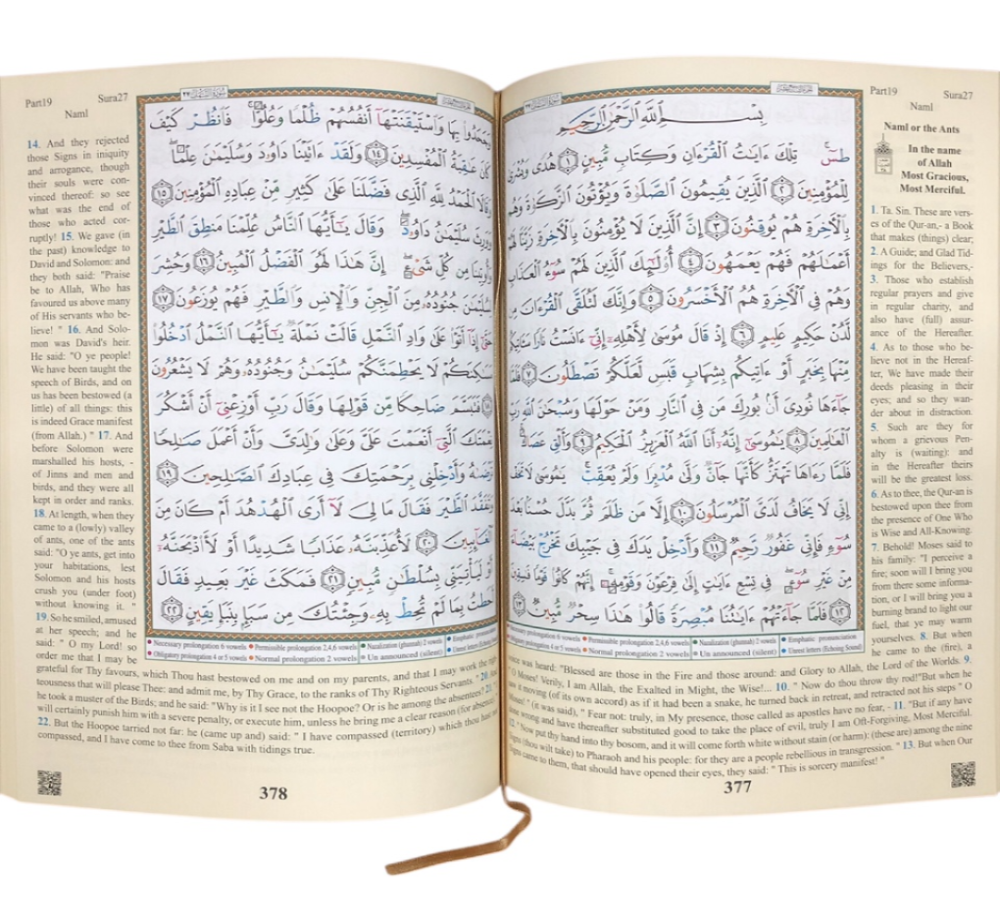 Part19 Sura27
Naml
Naml or the Ants
In the name
of Allah
Most Gracious,
Most Merciful.
بِسْمِ ٱللَّهِ ٱلرَّحْمَٰنِ ٱلرَّحِيمِ
طسٓ تِلْكَ ءَايَٰتُ ٱلْقُرْءَانِ وَكِتَابٍ مُّبِينٍ ١ هُدًى وَبُشْرَىٰ
لِلْمُؤْمِنِينَ ٢ ٱلَّذِينَ يُقِيمُونَ ٱلصَّلَوٰةَ وَيُؤْتُونَ ٱلزَّكَوٰةَ وَهُم
بِٱلْءَاخِرَةِ هُمْ يُوقِنُونَ ٣ إِنَّ ٱلَّذِينَ لَا يُؤْمِنُونَ بِٱلْءَاخِرَةِ زَيَّنَّا لَهُمْ
أَعْمَٰلَهُمْ فَهُمْ يَعْمَهُونَ ٤ أُو۟لَٰٓئِكَ ٱلَّذِينَ لَهُمْ سُوٓءُ ٱلْعَذَابِ
وَهُمْ فِى ٱلْءَاخِرَةِ هُمُ ٱلْأَخْسَرُونَ ٥ وَإِنَّكَ لَتُلَقَّى ٱلْقُرْءَانَ مِن
لَّدُنْ حَكِيمٍ عَلِيمٍ ٦ إِذْ قَالَ مُوسَىٰ لِأَهْلِهِۦٓ إِنِّىٓ ءَانَسْتُ نَارًا سَـَٔاتِيكُم
مِّنْهَا بِخَبَرٍ أَوْ ءَاتِيكُم بِشِهَابٍ قَبَسٍ لَّعَلَّكُمْ تَصْطَلُونَ ٧ فَلَمَّا
جَآءَهَا نُودِىَ أَنۢ بُورِكَ مَن فِى ٱلنَّارِ وَمَنْ حَوْلَهَا وَسُبْحَٰنَ ٱللَّهِ رَبِّ
ٱلْعَٰلَمِينَ ٨ يَٰمُوسَىٰٓ إِنَّهُۥٓ أَنَا ٱللَّهُ ٱلْعَزِيزُ ٱلْحَكِيمُ ٩ وَأَلْقِ عَصَاكَ
فَلَمَّا رَءَاهَا تَهْتَزُّ كَأَنَّهَا جَآنٌّ وَلَّىٰ مُدْبِرًا وَلَمْ يُعَقِّبْ يَٰمُوسَىٰ لَا تَخَفْ
إِنِّى لَا يَخَافُ لَدَىَّ ٱلْمُرْسَلُونَ ١٠ إِلَّا مَن ظَلَمَ ثُمَّ بَدَّلَ حُسْنًۢا بَعْدَ
سُوٓءٍ فَإِنِّى غَفُورٌ رَّحِيمٌ ١١ وَأَدْخِلْ يَدَكَ فِى جَيْبِكَ تَخْرُجْ بَيْضَآءَ
مِنْ غَيْرِ سُوٓءٍ فِى تِسْعِ ءَايَٰتٍ إِلَىٰ فِرْعَوْنَ وَقَوْمِهِۦٓ إِنَّهُمْ كَانُوا۟ قَوْمًا فَٰسِقِينَ
١٢ فَلَمَّا جَآءَتْهُمْ ءَايَٰتُنَا مُبْصِرَةً قَالُوا۟ هَٰذَا سِحْرٌ مُّبِينٌ ١٣
Necessary prolongation 6 vowels Permissible prolongation 2,4,6 vowels Nazalization (ghunnah) 2 vowels Emphatic pronunciation
Obligatory prolongation 4 or 5 vowels Normal prolongation 2 vowels Un announced (silent) Unrest letters (Echoing Sound)
1. Ta. Sin. These are vers-
es of the Qur-an,- a Book
that makes (things) clear;
2. A Guide; and Glad Tid-
ings for the Believers,-
3. Those who establish
regular prayers and give
in regular charity, and
also have (full) assur-
ance of the Hereafter.
4. As to those who be-
lieve not in the Hereaf-
ter, We have made their
deeds pleasing in their
eyes; and so they wan-
der about in distraction.
5. Such are they for
whom a grievous Pen-
alty is (waiting): and
in the Hereafter theirs
will be the greatest loss.
6. As to thee, the Qur-an is
bestowed upon thee from
the presence of One Who
is Wise and All-Knowing.
7. Behold! Moses said to
his family: "I perceive a
fire; soon will I bring you
from there some informa-
tion, or I will bring you a
burning brand to light our
fuel, that ye may warm
yourselves. 8. But when
he came to the (fire), a
voice was heard: "Blessed are those in the Fire and those around: and Glory to Allah, the Lord of the Worlds. 9.
"O Moses! Verily, I am Allah, the Exalted in Might, the Wise!... 10. " Now do thou throw thy rod!"But when he
saw it moving (of its own accord) as if it had been a snake, he turned back in retreat, and retraced not his steps " O
Moses!" (it was said), " Fear not: truly, in My presence, those called as apostles have no fear, - 11. "But if any have
done wrong and have thereafter substituted good to take the place of evil, truly I am Oft-Forgiving, Most Merciful.
12. " Now put thy hand into thy bosom, and it will come forth white without stain (or harm): (these are) among the nine
Signs (thou wilt take) to Pharaoh and his people: for they are a people rebellious in transgression. " 13. But when Our
Signs came to them, that should have opened their eyes, they said: " This is sorcery manifest! "
377
Part19 Sura27
Naml
وَجَحَدُوا۟ بِهَا وَٱسْتَيْقَنَتْهَآ أَنفُسُهُمْ ظُلْمًا وَعُلُوًّا فَٱنظُرْ كَيْفَ
كَانَ عَٰقِبَةُ ٱلْمُفْسِدِينَ ١٤ وَلَقَدْ ءَاتَيْنَا دَاوُۥدَ وَسُلَيْمَٰنَ عِلْمًا
وَقَالَا ٱلْحَمْدُ لِلَّهِ ٱلَّذِى فَضَّلَنَا عَلَىٰ كَثِيرٍ مِّنْ عِبَادِهِ ٱلْمُؤْمِنِينَ ١٥
وَوَرِثَ سُلَيْمَٰنُ دَاوُۥدَ وَقَالَ يَٰٓأَيُّهَا ٱلنَّاسُ عُلِّمْنَا مَنطِقَ ٱلطَّيْرِ
وَأُوتِينَا مِن كُلِّ شَىْءٍ إِنَّ هَٰذَا لَهُوَ ٱلْفَضْلُ ٱلْمُبِينُ ١٦ وَحُشِرَ
لِسُلَيْمَٰنَ جُنُودُهُۥ مِنَ ٱلْجِنِّ وَٱلْإِنسِ وَٱلطَّيْرِ فَهُمْ يُوزَعُونَ ١٧
حَتَّىٰٓ إِذَآ أَتَوْا۟ عَلَىٰ وَادِ ٱلنَّمْلِ قَالَتْ نَمْلَةٌ يَٰٓأَيُّهَا ٱلنَّمْلُ ٱدْخُلُوا۟
مَسَٰكِنَكُمْ لَا يَحْطِمَنَّكُمْ سُلَيْمَٰنُ وَجُنُودُهُۥ وَهُمْ لَا يَشْعُرُونَ
١٨ فَتَبَسَّمَ ضَاحِكًا مِّن قَوْلِهَا وَقَالَ رَبِّ أَوْزِعْنِىٓ أَنْ أَشْكُرَ
نِعْمَتَكَ ٱلَّتِىٓ أَنْعَمْتَ عَلَىَّ وَعَلَىٰ وَٰلِدَىَّ وَأَنْ أَعْمَلَ صَٰلِحًا
تَرْضَىٰهُ وَأَدْخِلْنِى بِرَحْمَتِكَ فِى عِبَادِكَ ٱلصَّٰلِحِينَ ١٩
وَتَفَقَّدَ ٱلطَّيْرَ فَقَالَ مَا لِىَ لَآ أَرَى ٱلْهُدْهُدَ أَمْ كَانَ مِنَ
ٱلْغَآئِبِينَ ٢٠ لَأُعَذِّبَنَّهُۥ عَذَابًا شَدِيدًا أَوْ لَأَا۟ذْبَحَنَّهُۥٓ
أَوْ لَيَأْتِيَنِّى بِسُلْطَٰنٍ مُّبِينٍ ٢١ فَمَكَثَ غَيْرَ بَعِيدٍ فَقَالَ
أَحَطتُ بِمَا لَمْ تُحِطْ بِهِۦ وَجِئْتُكَ مِن سَبَإٍۭ بِنَبَإٍ يَقِينٍ ٢٢
Necessary prolongation 6 vowels Permissible prolongation 2,4,6 vowels Nazalization (ghunnah) 2 vowels Emphatic pronunciation
Obligatory prolongation 4 or 5 vowels Normal prolongation 2 vowels Un announced (silent) Unrest letters (Echoing
14. And they rejected
those Signs in iniquity
and arrogance, though
their souls were con-
vinced thereof: so see
what was the end of
those who acted cor-
ruptly! 15. We gave (in
the past) knowledge to
David and Solomon: and
they both said: "Praise
be to Allah, Who has
favoured us above many
of His servants who be-
lieve! " 16. And Solo-
mon was David's heir.
He said: "O ye people!
We have been taught the
speech of Birds, and on
us has been bestowed (a
little) of all things: this
is indeed Grace manifest
(from Allah.) " 17. And
before Solomon were
marshalled his hosts, -
of Jinns and men and
birds, and they were all
kept in order and ranks.
18. At length, when they
came to a (lowly) valley
of ants, one of the ants
said: "O ye ants, get into
your habitations, lest
Solomon and his hosts
crush you (under foot)
without knowing it. "
19. So he smiled, amused
at her speech; and he
said: " O my Lord! so
order me that I may be
grateful for Thy favours, which Thou hast bestowed on me and on my parents, and that I may work the
teousness that will please Thee: and admit me, by Thy Grace, to the ranks of Thy Righteous Servants. " 20.
he took a muster of the Birds; and he said: "Why is it I see not the Hoopoe? Or is he among the absentees? 21.
will certainly punish him with a severe penalty, or execute him, unless he bring me a clear reason (for absence).
22. But the Hoopoe tarried not far: he (came up and) said: " I have compassed (territory) which thou hast
compassed, and I have come to thee from Saba with tidings true.
378